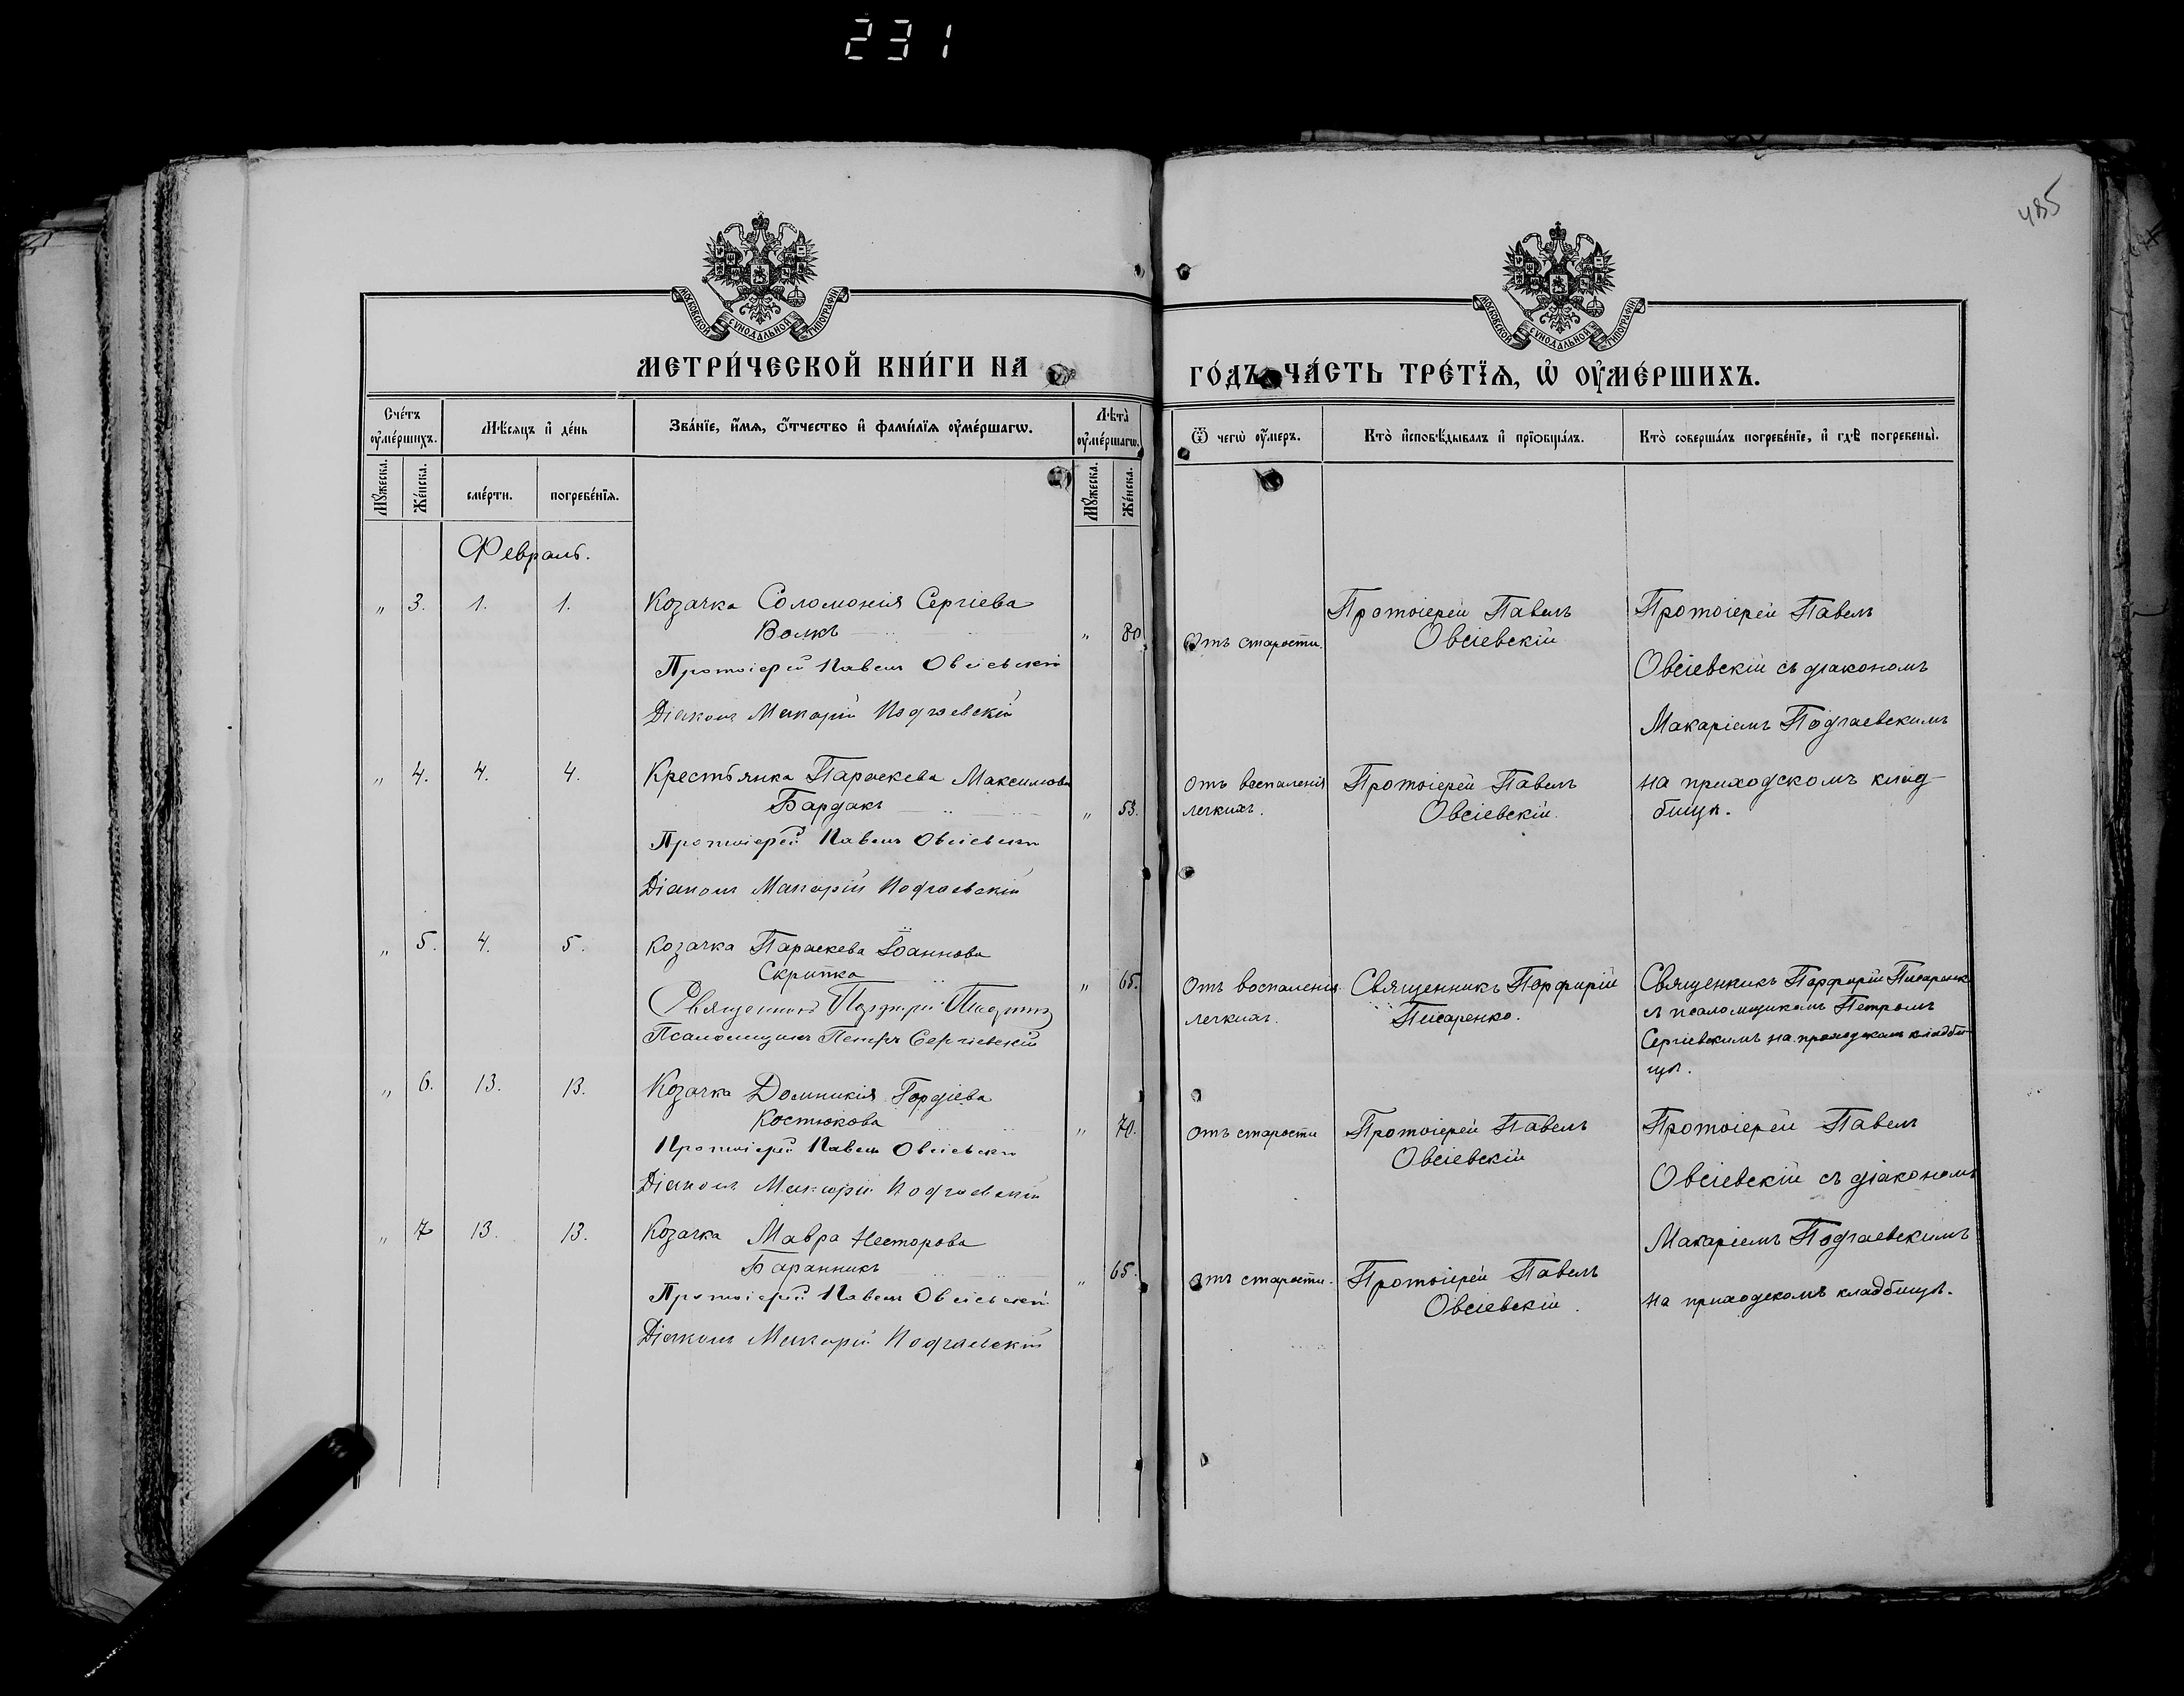 231
485
МОСКОВСКОЙ СУНОДАЛЬНОЙ ТИПОГРАФІИ
МОСКОВСКОЙ СУНОДАЛЬНОЙ ТИПОГРАФІИ
МЕТРИ́ЧЕСКОЙ КНИ́ГИ НА
ГО́ДЪ ЧА́СТЬ ТРЕ́ТЇѦ, Ѡ҆ ОУ҆МЕ́РШИХЪ.
Сче́тъ оу҆ме́ршихъ.
Мѣ́сяцъ и҆ де́нь
Зва́нїе, и҆́мѧ, ѻ҆́тчество и҆ фами́лїѧ оу҆ме́ршагѡ.
Лѣта̀ оу҆ме́ршагѡ.
Ѿ чегѡ̀ оу҆́меръ.
Кто̀ и҆сповѣ́дывалъ и҆ прїѻбща́лъ.
Кто̀ соверша́лъ погребе́нїе, и҆ гдѣ̀ погребены̀.
Мꙋ́жеска.
Же́нска.
сме́рти.
погребе́нїѧ.
Мꙋ́жеска.
Же́нска.
Февраль.
" 3. 1. 1. Козачка Соломонія Сергіева
Волкъ " 80
Протоіерей Павелъ Овсіевскій
Діаконъ Макарій Подгаевскій
Отъ старости.
Протоіерей Павелъ
Овсіевскій
Протоіерей Павелъ
Овсіевскій съ діакономъ
Макаріемъ Подгаевскимъ
на приходскомъ клад-
бищѣ.
" 4. 4. 4. Крестьянка Параскева Максимова
Бардакъ " 53.
Протоіерей Павелъ Овсіевскій
Діаконъ Макарій Подгаевскій
Отъ воспаленія
легкихъ.
Протоіерей Павелъ
Овсіевскій.
" 5. 4. 5. Козачка Параскева Іоаннова
Скрипка " 65.
Священникъ Порфирій Писаренко
Псаломщикъ Петръ Сергіевскій
Отъ воспаленія
легкихъ.
Священникъ Порфирій
Писаренко.
Священникъ Порфирій Писаренко
съ псаломщикомъ Петромъ
Сергіевскимъ на приходскомъ кладби-
щѣ.
" 6. 13. 13. Козачка Домникія Гордіева
Костюкова " 70.
Протоіерей Павелъ Овсіевскій
Діаконъ Макарій Подгаевскій
Отъ старости
Протоіерей Павелъ
Овсіевскій
Протоіерей Павелъ
Овсіевскій съ діакономъ
Макаріемъ Подгаевскимъ
на приходскомъ кладбищѣ.
" 7 13. 13. Козачка Мавра Несторова
Баранникъ " 65.
Протоіерей Павелъ Овсіевскій
Діаконъ Макарій Подгаевскій
Отъ старости.
Протоіерей Павелъ
Овсіевскій.